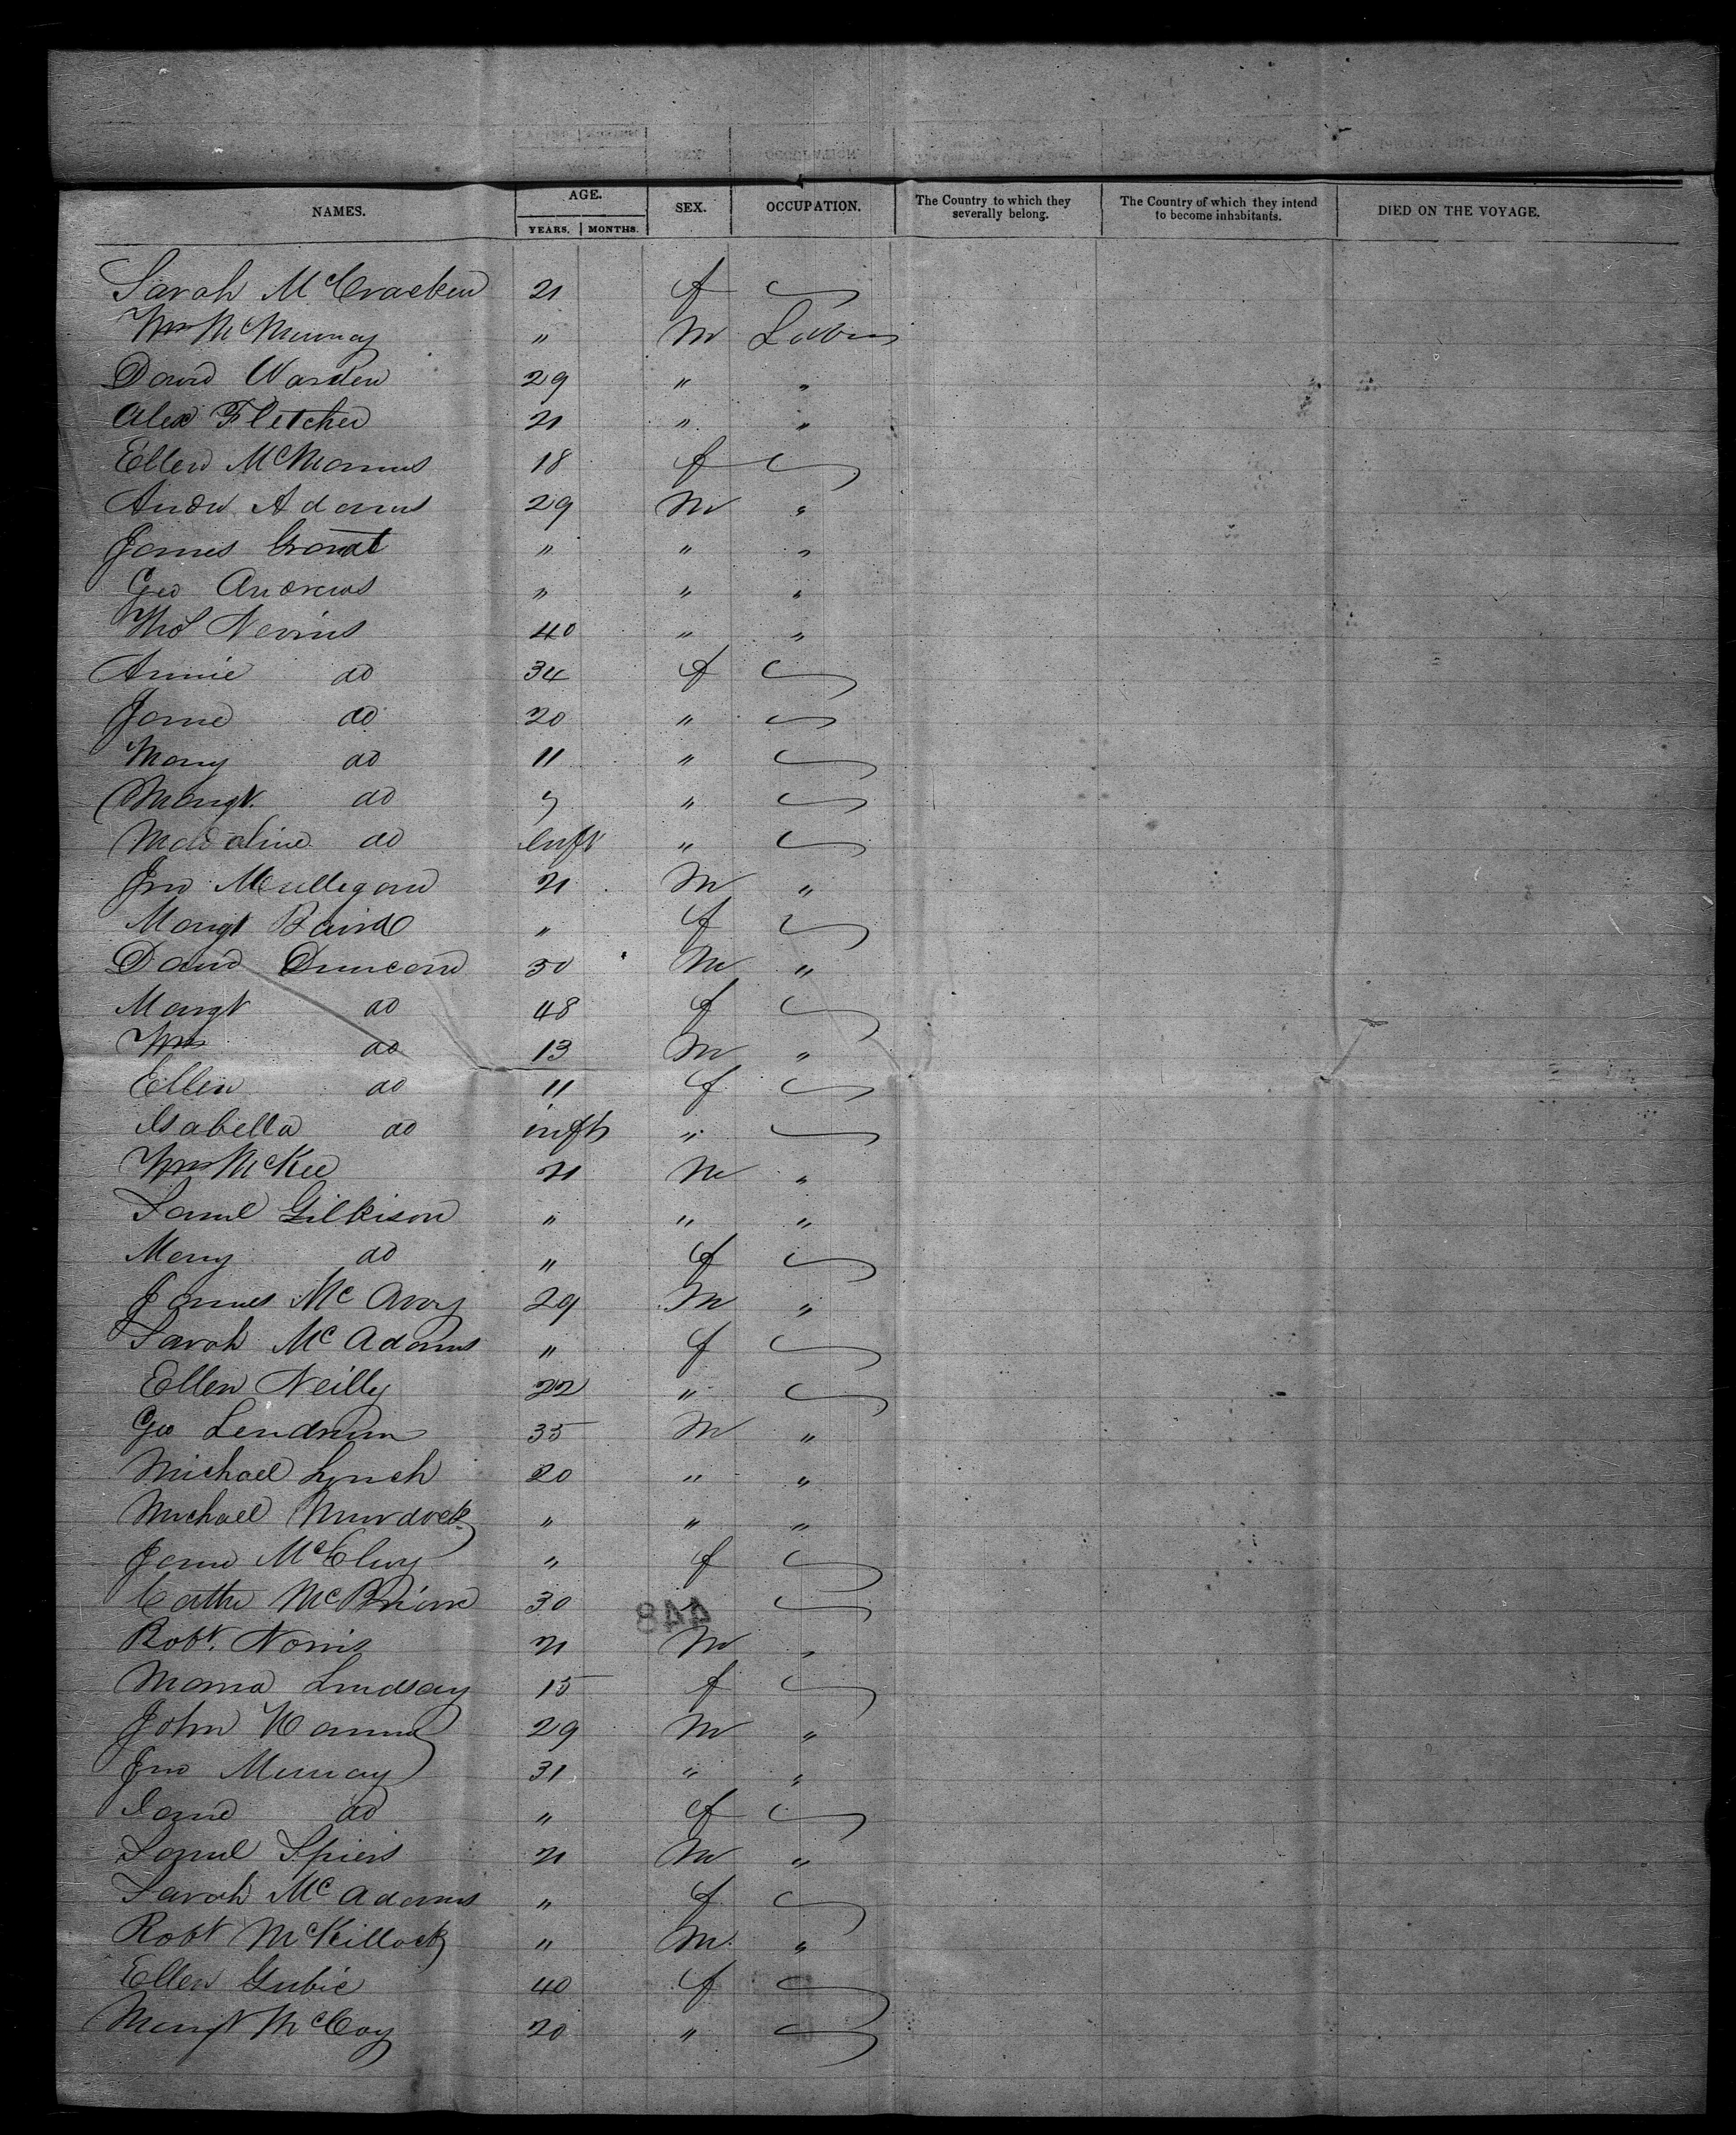 NAMES. AGE. YEARS. MONTHS. SEX. OCCUPATION. The Country to which they severally belong. The Country of which they intend to become inhabitants. DIED ON THE VOYAGE.
Sarah McCracken 21 f
Wm McMurray " M Labor
David Warden 29 " "
Alex Fletcher 21 " "
Ellen McManus 18 f
Andw Adams 29 M "
James Grant " " "
Geo Andrews " " "
Thos Nevins 40 " "
Annie do 34 f
Jane do 20 "
Mary do 11 "
Margt. do 9 "
Madaline do Inft "
Jno Mullegan 21 M "
Margt Baird " f
David Duncan 50 M "
Margt do 48 f
Wm do 13 M "
Ellen do 11 f
Isabella do inft "
Wm McKee 21 M "
Saml Gilkison " " "
Mary do " f
James McAvoy 29 M "
Sarah McAdams " f
Ellen Neilly 22 "
Geo Lendrum 35 M "
Michael Lynch 20 " "
Michael Murdock " " "
Jane McElwy " f
Cathe 30
Robt. Norris 21 M "
Maria Lindsay 15 f
John Hanna 29 M "
Jno Murray 31 " "
Jane do " f
Saml Spiers 21 M "
Sarah McAdams " f
Robt McKillock " M "
Ellen Gubie 40 f
Margt McCoy 20 "